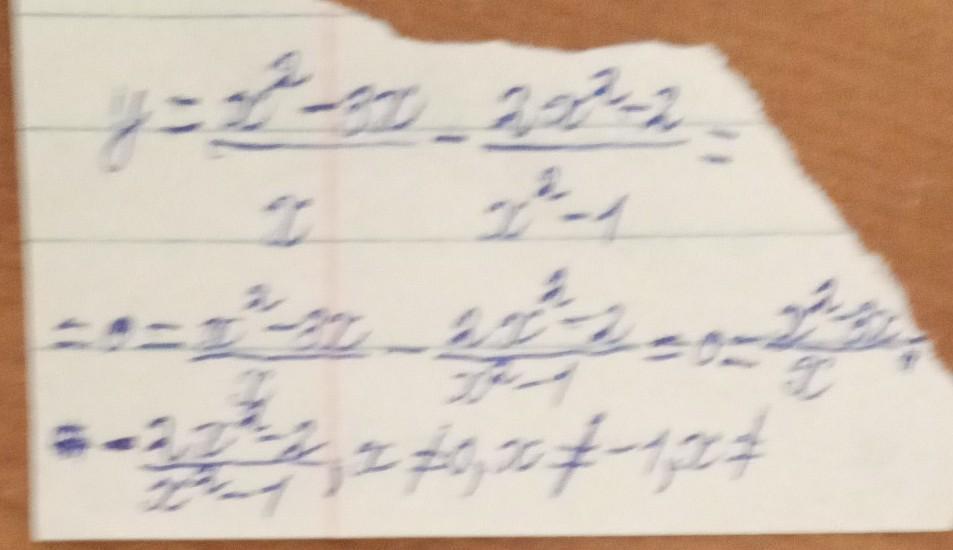 y = \frac{x^2-3x}{x} - \frac{2x^2-2}{x^2-1} =
= 0 = \frac{x^2-3x}{x} - \frac{2x^2-2}{x^2-1} = 0 = \frac{x^2-3x}{x}
- \frac{2x^2-2}{x^2-1}, x ≠ 0, x ≠ -1, x ≠